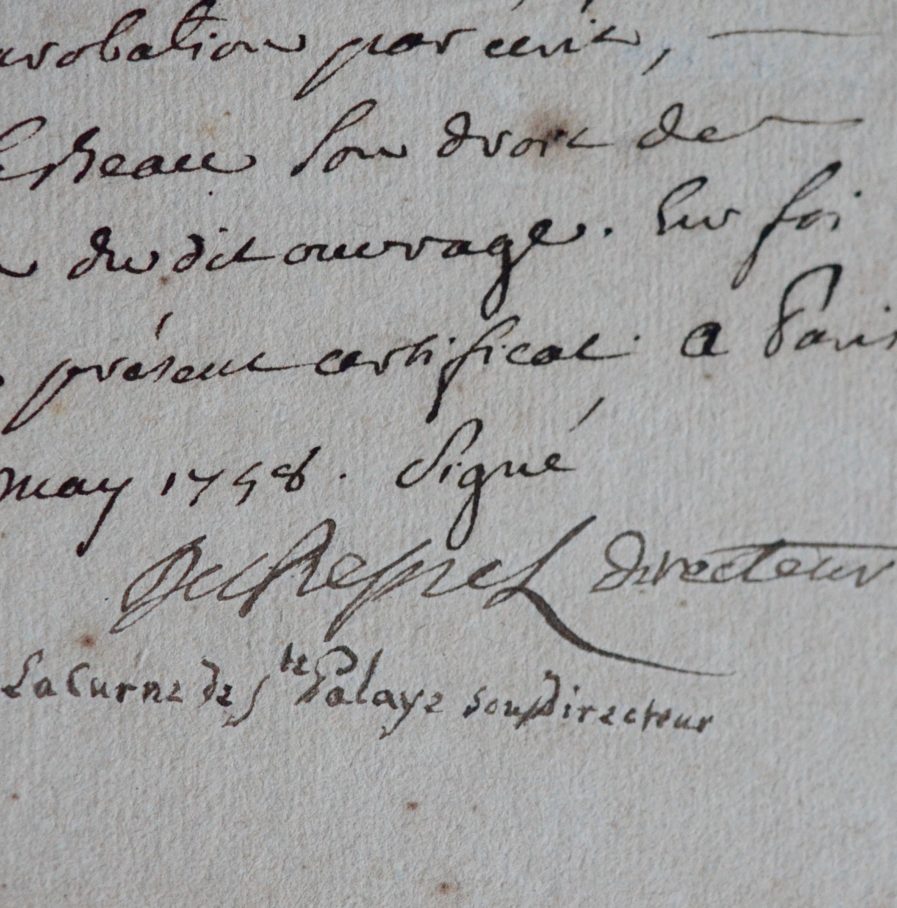 probation par écrit,
Le Beau son droit de
du dit ouvrage. En foi
présent certificat a Paris
may 1758. Signé
DuResnel directeur
LaCurne de Ste Palaye sousDirecteur